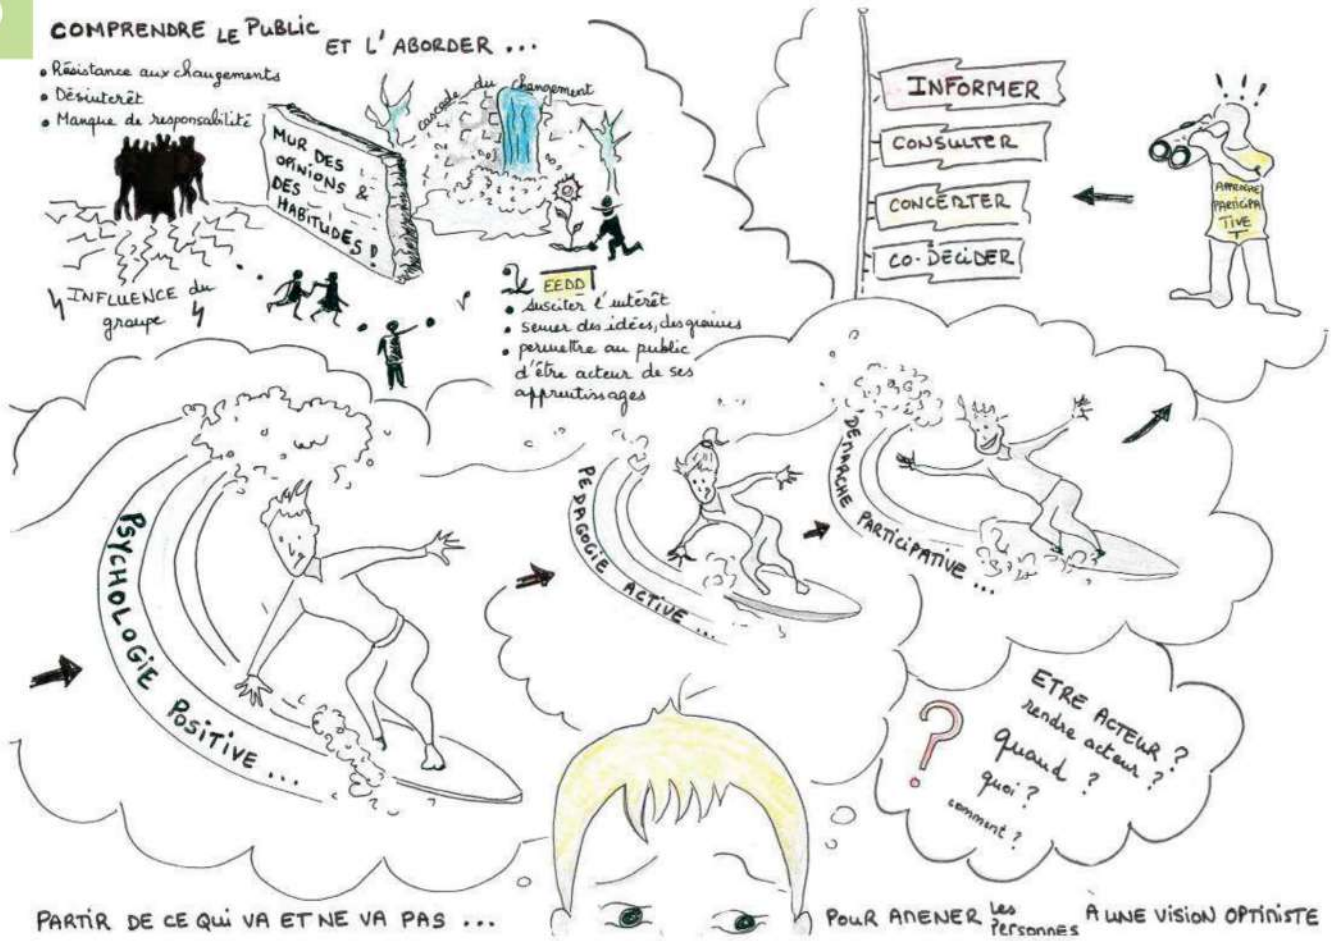 COMPRENDRE LE PUBLIC
ET L'ABORDER ...
• Résistance aux changements
• Désintérêt
• Manque de responsabilité
MUR DES
OPINIONS &
DES
HABITUDES !
cascade du changement
INFLUENCE du
groupe
EEDD
• susciter l'intérêt
• semer des idées, des graines
• permettre au public
d'être acteur de ses
apprentissages
INFORMER
CONSULTER
CONCERTER
CO-DÉCIDER
!!!
APPROCHE
PARTICIPA
TIVE
PSYCHOLOGIE POSITIVE ...
PEDAGOGIE ACTIVE ...
DEMARCHE PARTICIPATIVE ...
?
ETRE ACTEUR ?
rendre acteur ?
quand ?
quoi ?
comment ?
PARTIR DE CE QUI VA ET NE VA PAS ...
POUR AMENER les personnes À UNE VISION OPTIMISTE